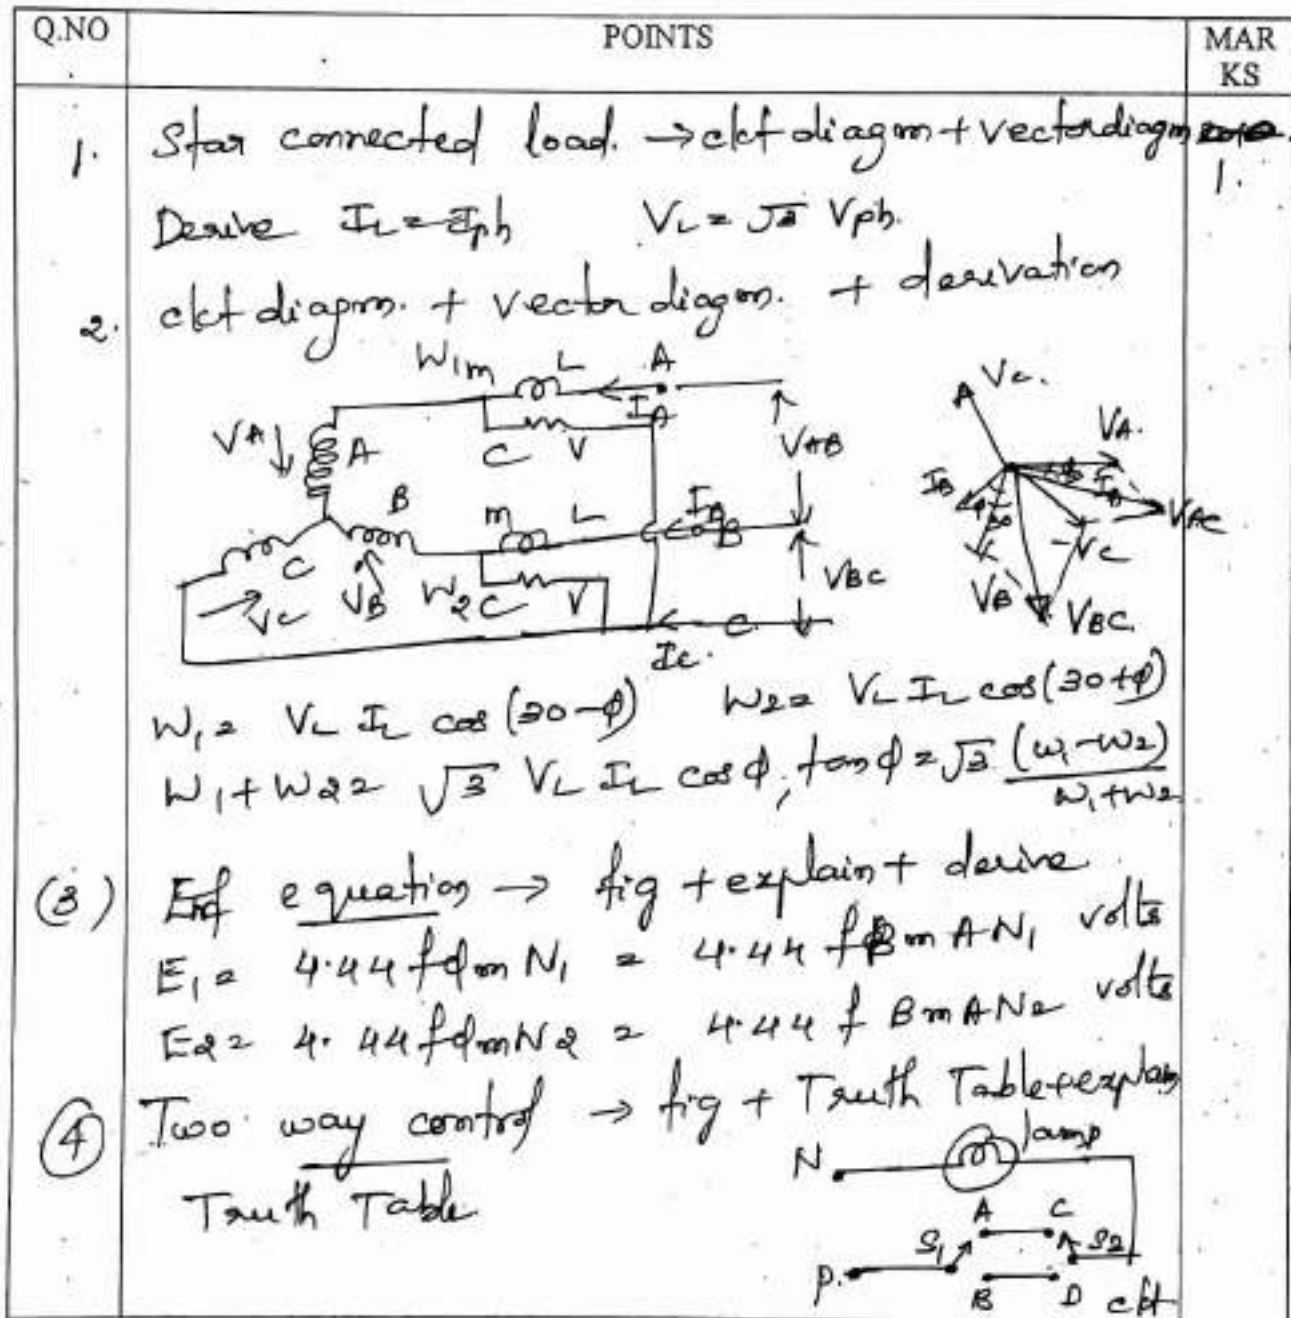 Q.NO POINTS MAR KS
1. Star connected load. → ckt diagm + vector diagm
1.
Derive IL = Iph VL = √3 Vph.
2. ckt diagm. + vector diagm. + derivation
W1 m L A
IA
VA A C V VAB
B
m L IB B
C VB W2 C V VBC
Vc
Ic. C
Vc.
VA.
IB ϕ IA
VAC
Vc
VB VBC
W1 = VL IL cos (30-ϕ) W2 = VL IL cos (30+ϕ)
W1 + W2 = √3 VL IL cos ϕ, tan ϕ = √3 (W1-W2) / W1+W2
(3) Emf equation → fig + explain + derive
E1 = 4.44 f ϕm N1 = 4.44 f Bm A N1 volts
E2 = 4.44 f ϕm N2 = 4.44 f Bm A N2 volts
4 Two way control → fig + Truth Table + explain
Truth Table
N lamp
A C
S1 S2
P. B D ckt